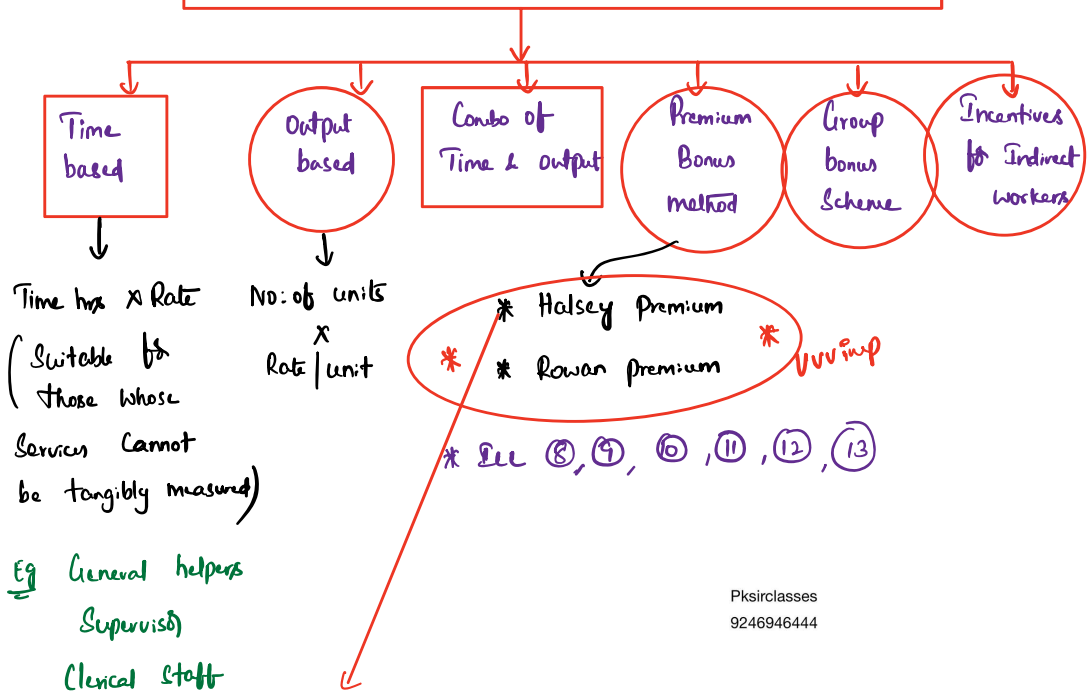 Time
based
Output
based
Combo of
Time & output
Premium
Bonus
method
Group
bonus
Scheme
Incentives
for Indirect
workers
Time hrs x Rate
(Suitable for
those whose
Services Cannot
be tangibly measured)
Eg General helpers
Supervisor
Clerical Staff
No: of units
x
Rate | unit
* Halsey Premium
* Rowan premium
*
*
VVV imp
* Ill 8, 9, 10, 11, 12, 13
Pksirclasses
9246946444